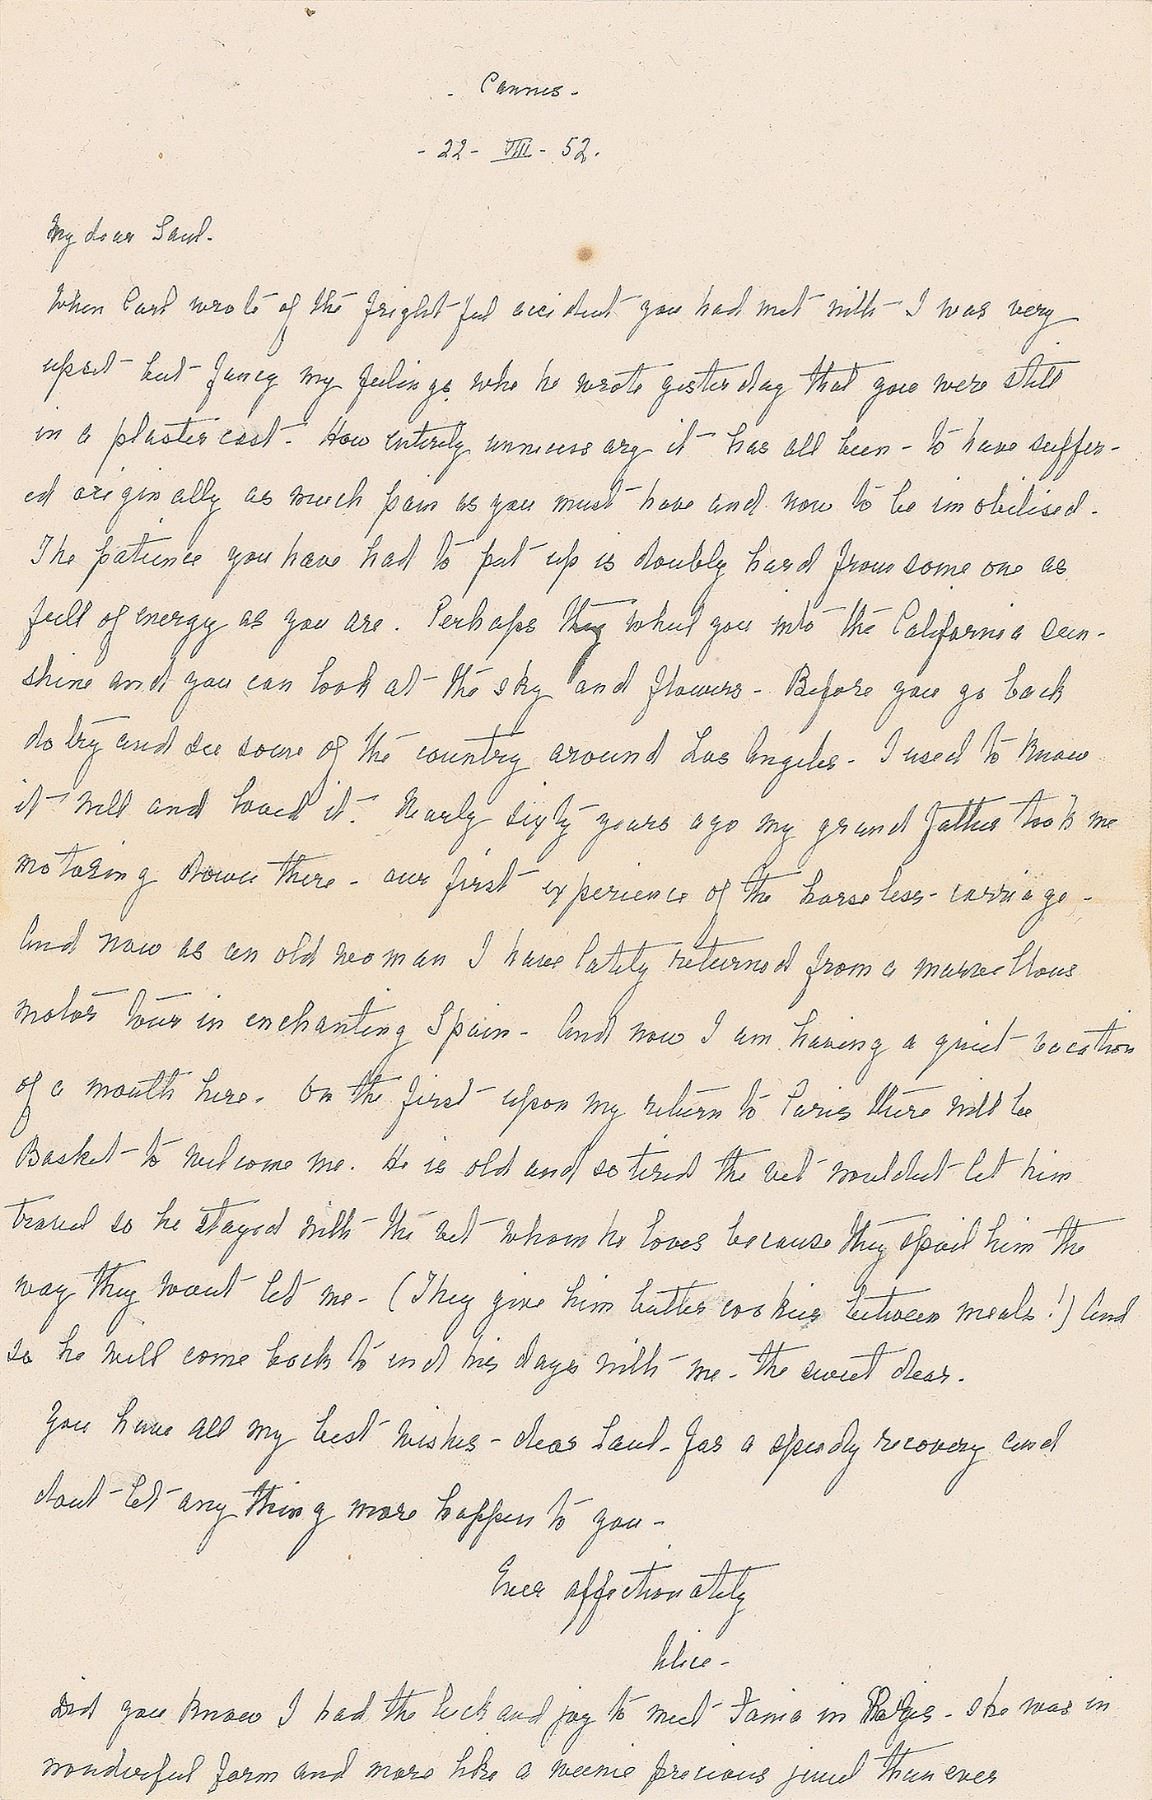 - Cannes -
- 22 - VIII - 52.
My dear Saul.
When Carl wrote of the frightful accident you had met with I was very
upset but fancy my feelings whe he wrote yesterday that you were still
in a plaster cast. How entirely unnecessary it has all been - to have suffer-
ed originally as much pain as you must have and now to be imobilised.
The patience you have had to put up is doubly hard from some one as
full of energy as you are. Perhaps they wheel you into the California sun-
shine and you can look at the sky and flowers - Before you go back
do try and see some of the country around Los Angeles - I used to know
it well and loved it. Nearly sixty years ago my grand father took me
motoring down there - our first experience of the horseless - carriage -
And now as an old woman I have lately returned from a marvellous
motor tour in enchanting Spain - And now I am having a quiet vacation
of a month here. On the first upon my return to Paris there will be
Basket to welcome me. He is old and so tired the vet wouldnt let him
travel so he stayed with the vet whom he loves because they spoil him the
way they wont let me - (They give him butter cookies between meals!) And
so he will come back to end his days with me - the sweet dear.
You have all my best wishes - dear Saul - for a speedy recovery and
dont let any thing more happen to you -
Ever affectionately
Alice -
Did you know I had the luck and joy to meet Fania in Paris - she was in
wonderful form and more like a weenie precious jewel than ever